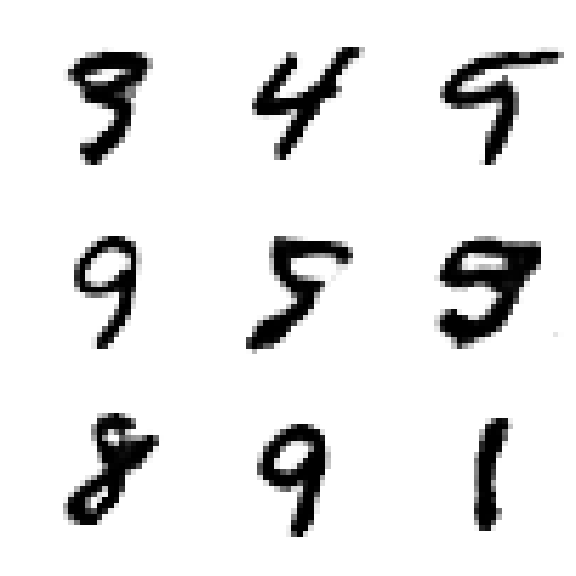 9 4 5
9 5 9
8 9 1